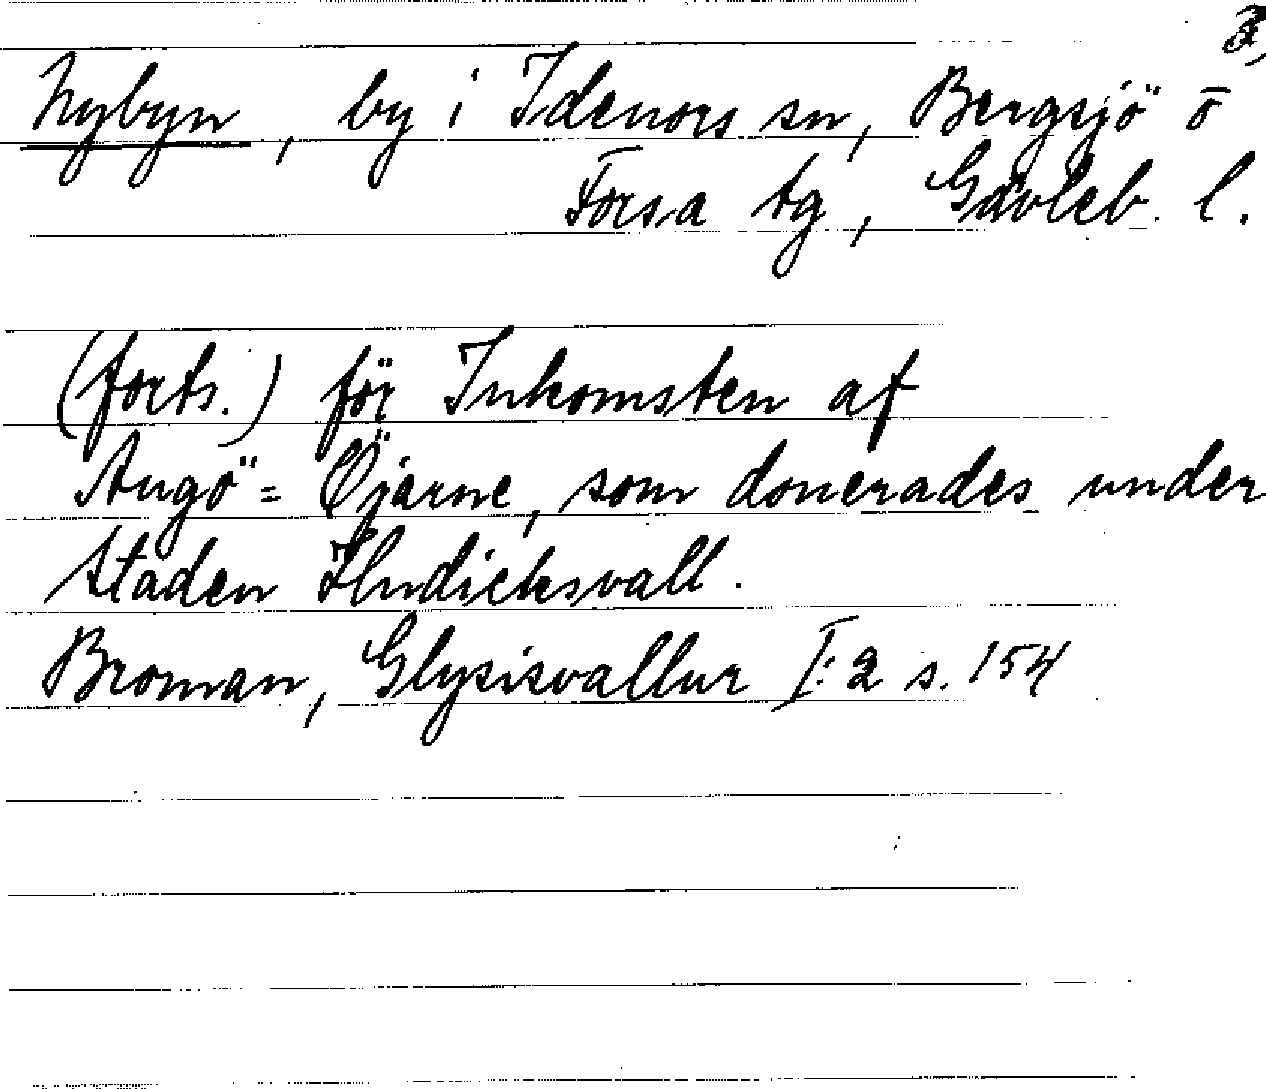 2,
Nybyn, by i Idenors sn, Bergsjö o
Forsa tg, Gävleb. l.
(forts.) för Inkomsten af
Angö= Öjarne, som donerades under
Staden Hudichsvall.
Broman, Glysisvallur I:2 s. 154